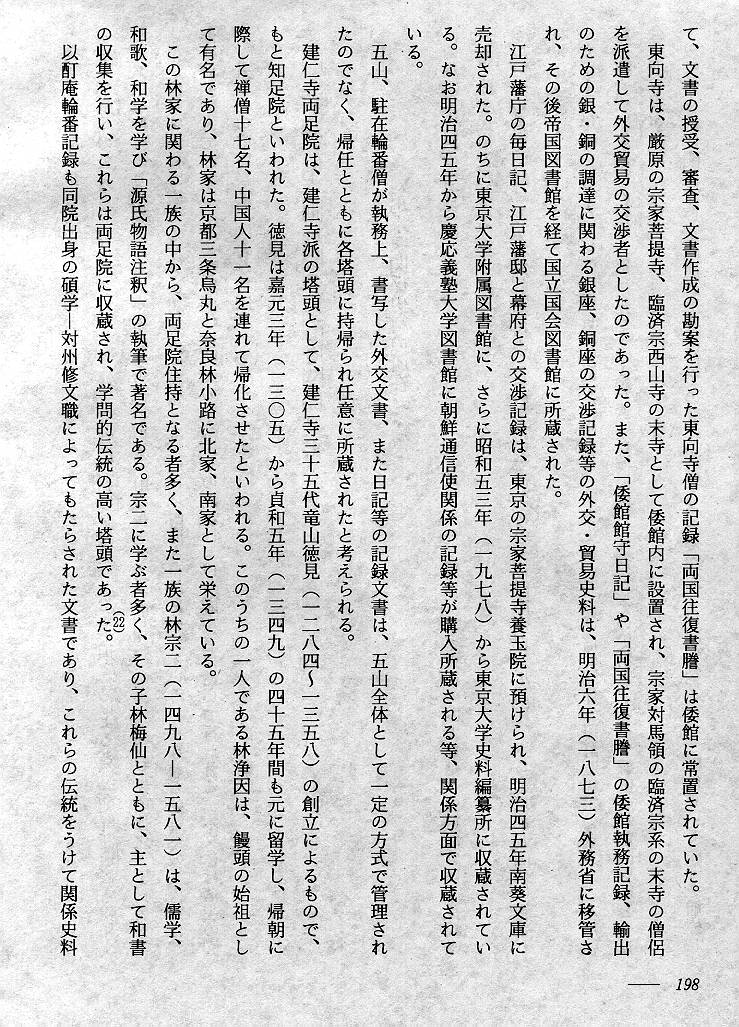 て、文書の授受、審査、文書作成の勘案を行った東向寺僧の記録「両国往復書謄」は倭館に常置されていた。
東向寺は、厳原の宗家菩提寺、臨済宗西山寺の末寺として倭館内に設置され、宗家対馬領の臨済宗系の末寺の僧侶
を派遣して外交貿易の交渉者としたのであった。また、「倭館館守日記」や「両国往復書謄」の倭館執務記録、輸出
のための銀・銅の調達に関わる銀座、銅座の交渉記録等の外交・貿易史料は、明治六年（一八七三）外務省に移管さ
れ、その後帝国図書館を経て国立国会図書館に所蔵された。
江戸藩庁の毎日記、江戸藩邸と幕府との交渉記録は、東京の宗家菩提寺養玉院に預けられ、明治四五年南葵文庫に
売却された。のちに東京大学附属図書館に、さらに昭和五三年（一九七八）から東京大学史料編纂所に収蔵されてい
る。なお明治四五年から慶応義塾大学図書館に朝鮮通信使関係の記録等が購入所蔵される等、関係方面で収蔵されて
いる。
五山、駐在輪番僧が執務上、書写した外交文書、また日記等の記録文書は、五山全体として一定の方式で管理され
たのでなく、帰任とともに各塔頭に持帰られ任意に所蔵されたと考えられる。
建仁寺両足院は、建仁寺派の塔頭として、建仁寺三十五代竜山徳見（一二八四～一三五八）の創立によるもので、
もと知足院といわれた。徳見は嘉元三年（一三〇五）から貞和五年（一三四九）の四十五年間も元に留学し、帰朝に
際して禅僧十七名、中国人十一名を連れて帰化させたといわれる。このうちの一人である林浄因は、饅頭の始祖とし
て有名であり、林家は京都三条烏丸と奈良林小路に北家、南家として栄えている。
この林家に関わる一族の中から、両足院住持となる者多く、また一族の林宗二（一四九八—一五八一）は、儒学、
和歌、和学を学び「源氏物語注釈」の執筆で著名である。宗二に学ぶ者多く、その子林梅仙とともに、主として和書
の収集を行い、これらは両足院に収蔵され、学問的伝統の高い塔頭であった。(22)
以酊庵輪番記録も同院出身の碩学—対州修文職によってもたらされた文書であり、これらの伝統をうけて関係史料
—— 198